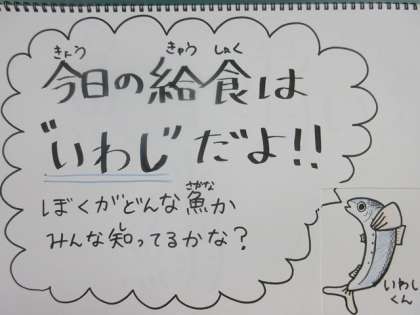 きょう きゅう しょく
今日の給食は
"いわし"だよ!!
さかな
ぼくがどんな魚か
し
みんな知ってるかな?
いわし
くん